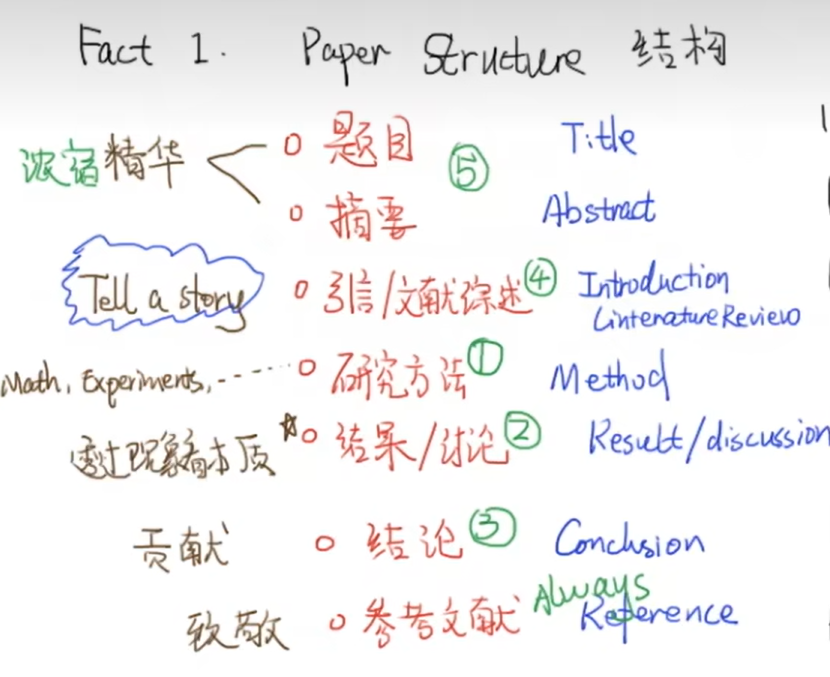 Fact 1. Paper Structure 结构
浓宿精华 题目 ⑤ Title
摘要 Abstract
Tell a story 引言/文献综述 ④ Introduction
LintenatureReview
Math, Experiments, ------ 研究方法 ① Method
透过现象看本质 ☆ 结果/讨论 ② Result/discussion
贡献 结论 ③ Conclusion
致敬 参考文献 Always Reference